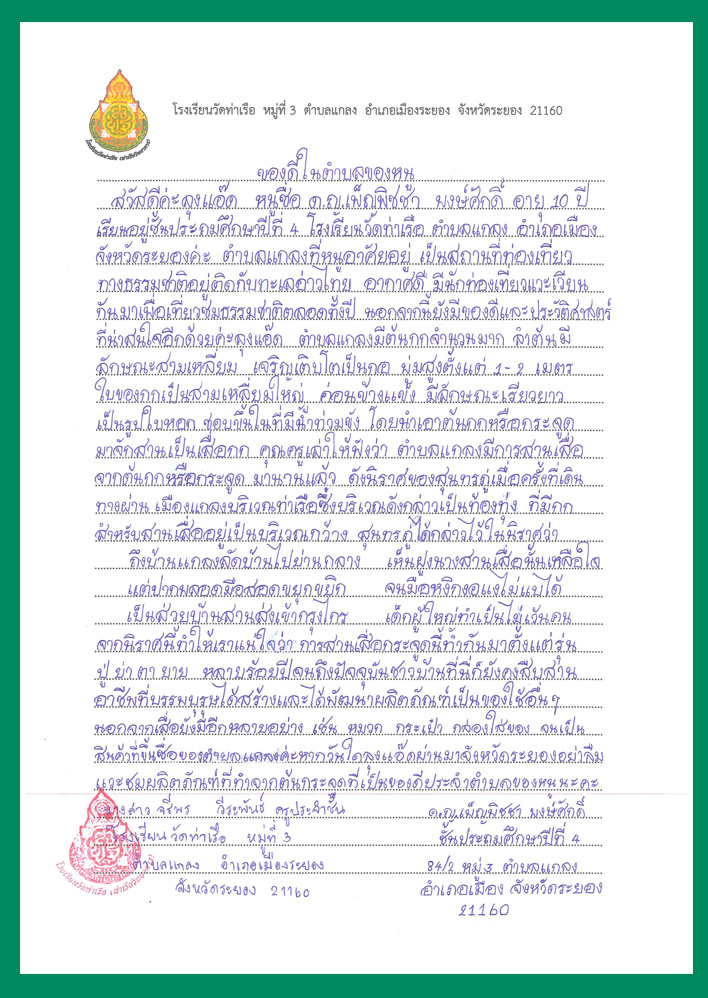 โรงเรียนวัดท่าเรือ หมู่ที่ 3 ตำบลแกลง อำเภอเมืองระยอง จังหวัดระยอง 21160
ของดีในตำบลของหนู
สวัสดีค่ะลุงแอ๊ด หนูชื่อ ด.ญ.เพ็ญพิชชา พงษ์ศักดิ์ อายุ 10 ปี
เรียนอยู่ชั้นประถมศึกษาปีที่ 4 โรงเรียนวัดท่าเรือ ตำบลแกลง อำเภอเมือง
จังหวัดระยองค่ะ ตำบลแกลงที่หนูอาศัยอยู่ เป็นสถานที่ท่องเที่ยว
ทางธรรมชาติอยู่ติดกับทะเลอ่าวไทย อากาศดี มีนักท่องเที่ยวแวะเวียน
กันมาเพื่อเที่ยวชมธรรมชาติตลอดทั้งปี นอกจากนี้ยังมีของดีและประวัติศาสตร์
ที่น่าสนใจอีกด้วยค่ะลุงแอ๊ด ตำบลแกลงมีต้นกกจำนวนมาก ลำต้นมี
ลักษณะสามเหลี่ยม เจริญเติบโตเป็นกอ พุ่มสูงตั้งแต่ 1-2 เมตร
ใบของกกเป็นสามเหลี่ยมใหญ่ ค่อนข้างแข็ง มีลักษณะเรียวยาว
เป็นรูปใบหอก ชอบขึ้นในที่มีน้ำท่วมขัง โดยนำเอาต้นกกหรือกระจูด
มาจักสานเป็นเสื่อกก คุณครูเล่าให้ฟังว่า ตำบลแกลงมีการสานเสื่อ
จากต้นกกหรือกระจูด มานานแล้ว ดังนิราศของสุนทรภู่เมื่อครั้งที่เดิน
ทางผ่าน เมืองแกลงบริเวณท่าเรือซึ่งบริเวณดังกล่าวเป็นท้องทุ่ง ที่มีกก
สำหรับสานเสื่ออยู่เป็นบริเวณกว้าง สุนทรภู่ได้กล่าวไว้ในนิราศว่า
ถึงบ้านแกลงลัดบ้านไปย่านกลาง เห็นฝูงนางสานเสื่อนั้นเหลือใจ
แต่ปากพลอดมือสอดขยุกขยิก จนมือหงิกงอแงไม่แบได้
เป็นส่วยบ้านสานส่งเข้ากรุงไกร เด็กผู้ใหญ่ทำเป็นไม่เว้นคน
จากนิราศนี้ทำให้เราแน่ใจว่า การสานเสื่อกระจูดนี้ทำกันมาตั้งแต่รุ่น
ปู่ ย่า ตา ยาย หลายร้อยปีจนถึงปัจจุบันชาวบ้านที่นี่ก็ยังคงสืบสาน
อาชีพที่บรรพบุรุษได้สร้างและได้พัฒนาผลิตภัณฑ์เป็นของใช้อื่นๆ
นอกจากเสื่อยังมีอีกหลายอย่าง เช่น หมวก กระเป๋า กล่องใส่ของ จนเป็น
สินค้าที่ขึ้นชื่อของตำบลแกลงค่ะหากวันใดลุงแอ๊ดผ่านมาจังหวัดระยองอย่าลืม
แวะชมผลิตภัณฑ์ที่ทำจากต้นกระจูดที่เป็นของดีประจำตำบลของหนูนะคะ
นางสาว จรีพร วีระพันธ์ ครูประจำชั้น ด.ญ.เพ็ญพิชชา พงษ์ศักดิ์
โรงเรียนวัดท่าเรือ หมู่ที่ 3 ชั้นประถมศึกษาปีที่ 4
ตำบลแกลง อำเภอเมืองระยอง 84/2 หมู่3 ตำบลแกลง
จังหวัดระยอง 21160 อำเภอเมือง จังหวัดระยอง
21160